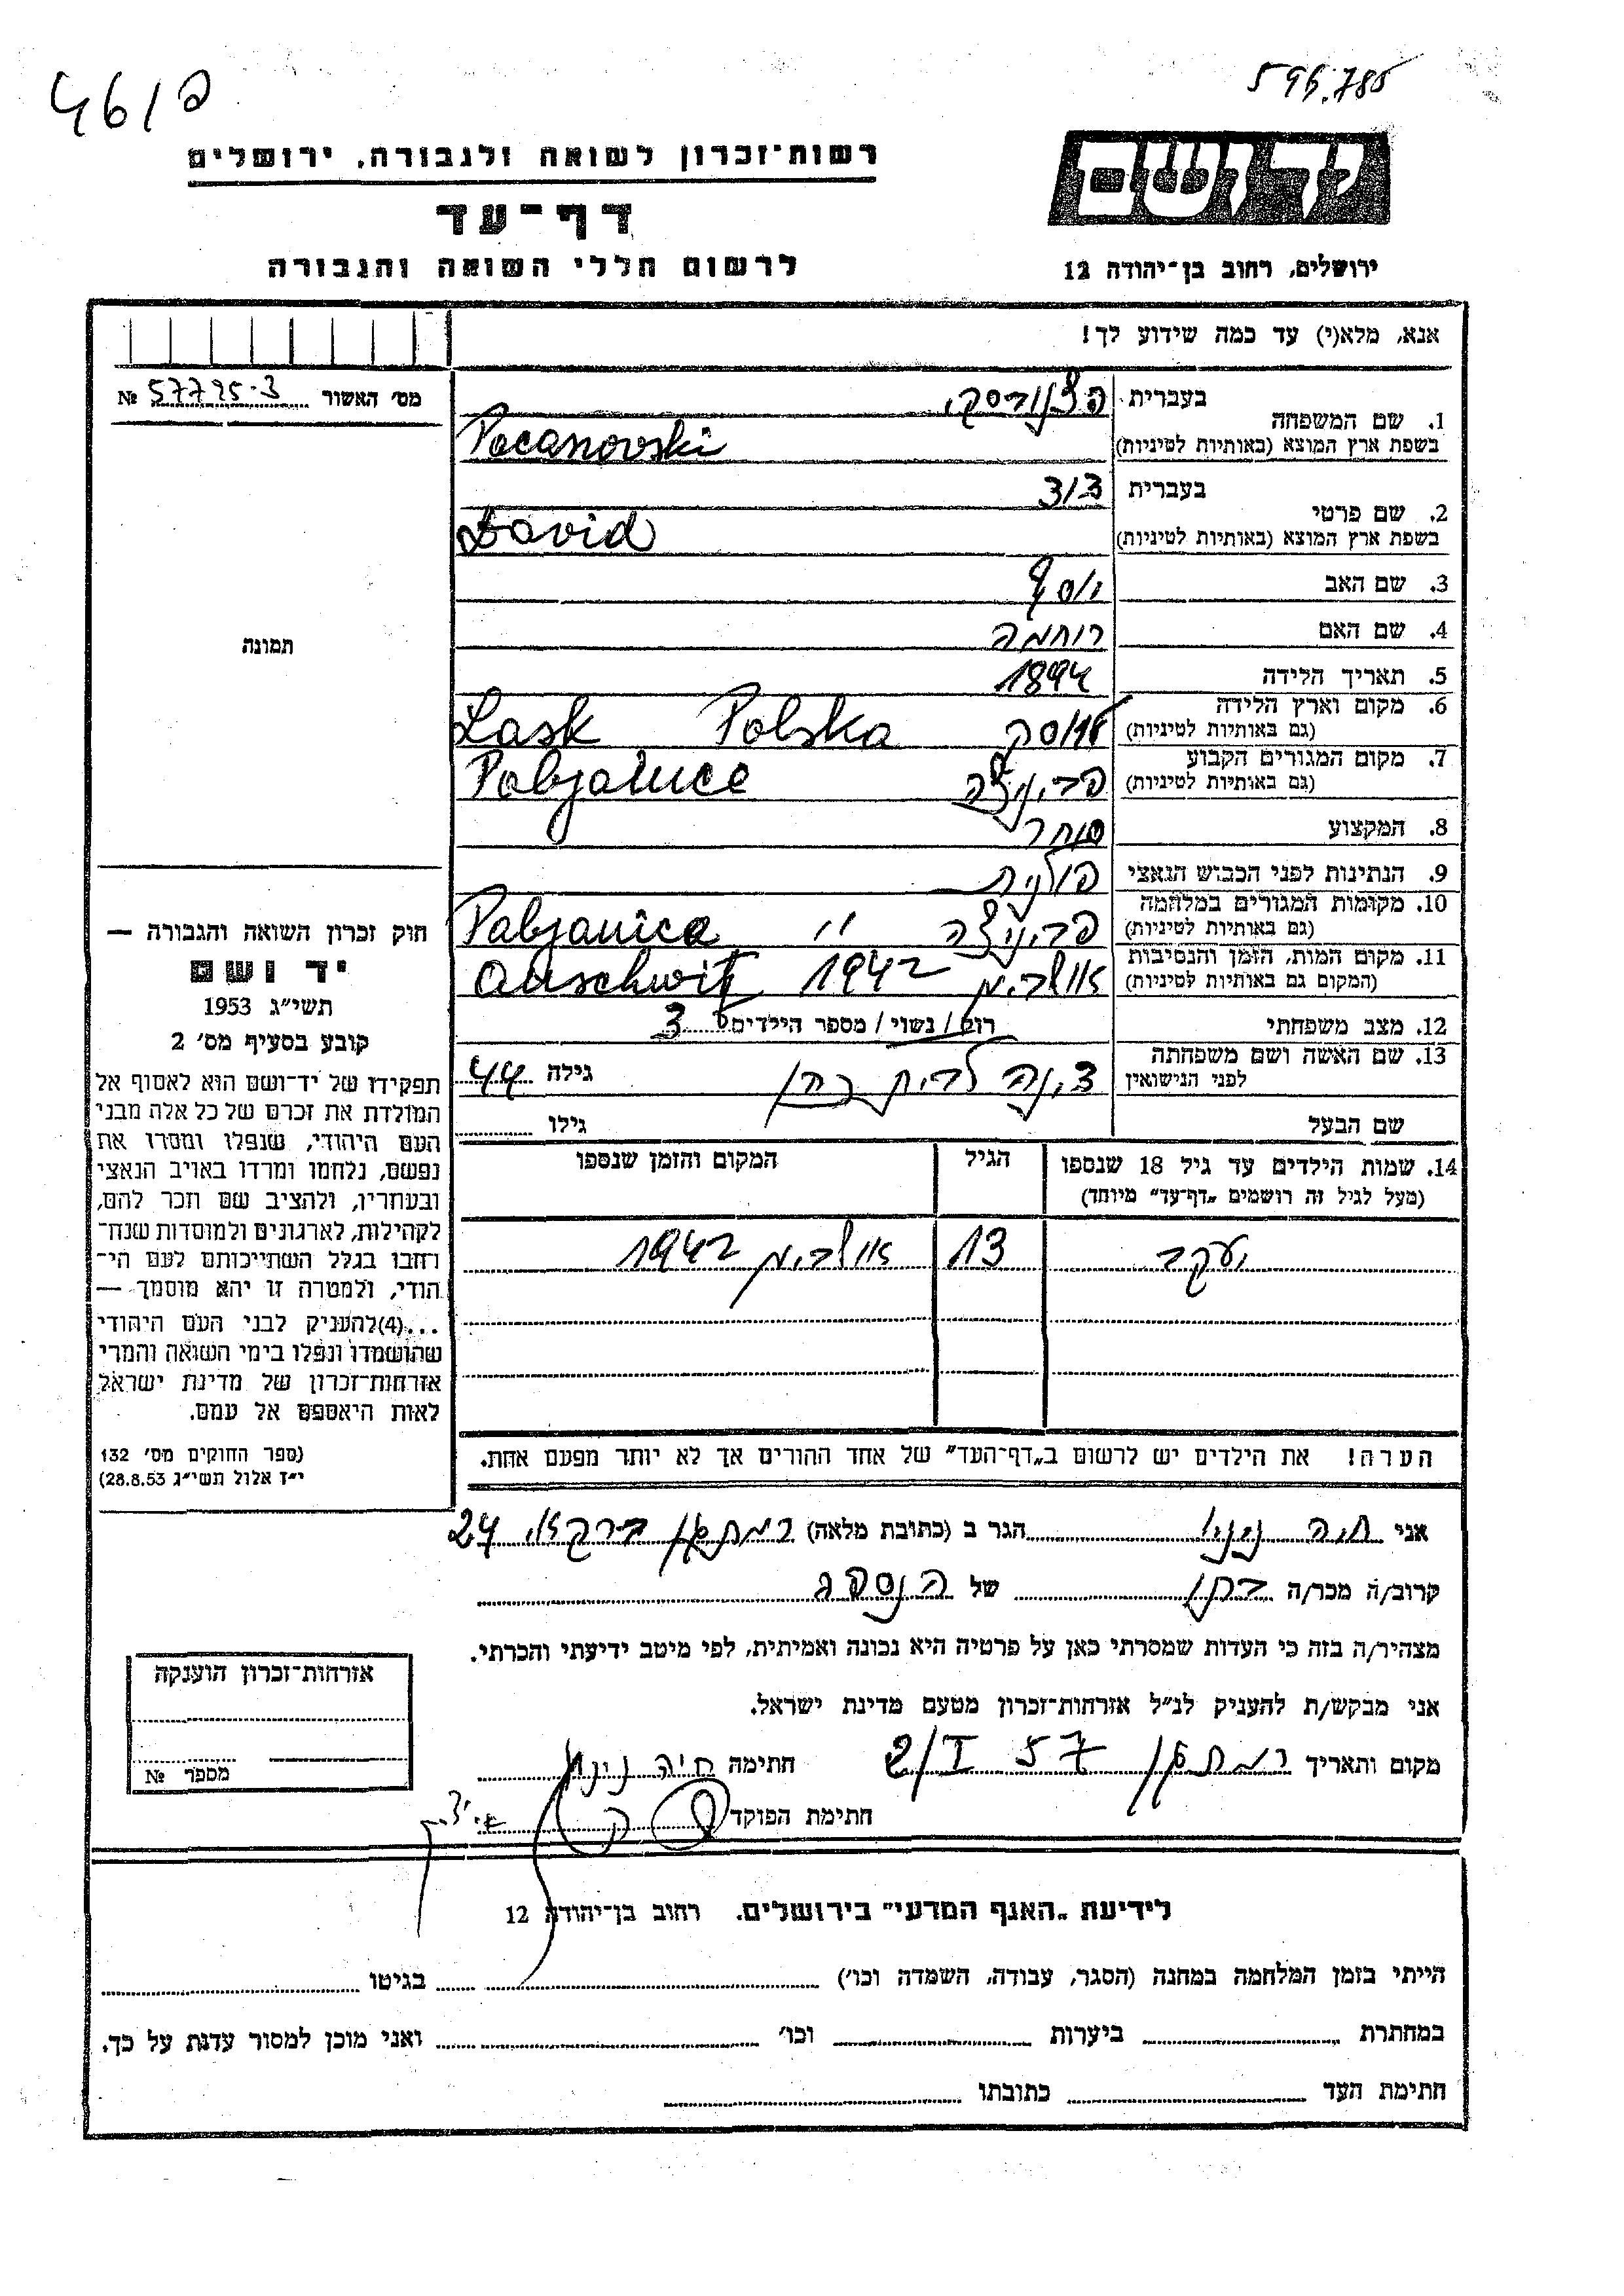 פ/46
596.785
רשות־זכרון לשואה ולגבורה, ירושלים
דף־עד
לרשום חללי השואה והגבורה
יד ושם
ירושלים, רחוב בן־יהודה 12
אנא, מלא(י) עד כמה שידוע לך!
מס׳ האשור 57795-3 №
תמונה
1. שם המשפחה
בעברית פצנובסקי
בשפת ארץ המוצא (באותיות לטיניות) Pacanovski
2. שם פרטי
בעברית דוד
בשפת ארץ המוצא (באותיות לטיניות) David
3. שם האב יוסף
4. שם האם רוחמה
5. תאריך הלידה 1894
6. מקום וארץ הלידה
(גם באותיות לטיניות) Lask Polska
7. מקום המגורים הקבוע
(גם באותיות לטיניות) פביניצה Pabjanice
8. המקצוע סוחר
9. הנתינות לפני הכבוש הנאצי פולנית
10. מקומות המגורים במלחמה
(גם באותיות לטיניות) פביניצה " Pabjanice
11. מקום המות, הזמן והנסיבות
(המקום גם באותיות לטיניות) 1942 Auschwitz
12. מצב משפחתי רוק/נשוי/ מספר הילדים 3
13. שם האשה ושם משפחתה
לפני הנישואין גילה 44
שם הבעל גילו
14. שמות הילדים עד גיל 18 שנספו
(מעל לגיל זה רושמים „דף־עד" מיוחד)
הגיל
המקום והזמן שנספו
יעקב 13 1942
הערה! את הילדים יש לרשום ב„דף־העד" של אחד ההורים אך לא יותר מפעם אחת.
חוק זכרון השואה והגבורה —
יד ושם
תשי״ג 1953
קובע בסעיף מס׳ 2
תפקידו של יד־ושם הוא לאסוף אל
המולדת את זכרם של כל אלה מבני
העם היהודי, שנפלו ומסרו את
נפשם, נלחמו ומרדו באויב הנאצי
ובעוזריו, ולהציב שם וזכר להם,
לקהילות, לארגונים ולמוסדות שנח־
רחבו בגלל השתייכותם לעם הי־
הודי, ולמטרה זו יהא מוסמך —
...(4)להעניק לבני העם היהודי
שהושמדו ונפלו בימי השואה והמרי
אזרחות־זכרון של מדינת ישראל
לאות היאספם אל עמם.
(ספר החוקים מס׳ 132
י״ז אלול תשי״ג 28.8.53)
אני חיה הגר ב (כתובת מלאה) רמת גן 24
קרוב/ה מכר/ה בתו של הנספה
מצהיר/ה בזה כי העדות שמסרתי כאן על פרטיה היא נכונה ואמיתית, לפי מיטב ידיעתי והכרתי.
אני מבקש/ת להעניק לנ״ל אזרחות־זכרון מטעם מדינת ישראל.
מקום ותאריך רמת גן 2/I 57 חתימה חיה
חתימת הפוקד
אזרחות־זכרון הוענקה
מספר №
לידיעת „האגף המדעי" בירושלים. רחוב בן־יהודה 12
הייתי בזמן המלחמה במחנה (הסגר, עבודה, השמדה וכו׳) בגיטו
במחתרת ביערות וכו׳ ואני מוכן למסור עדות על כך.
חתימת העד כתובתו